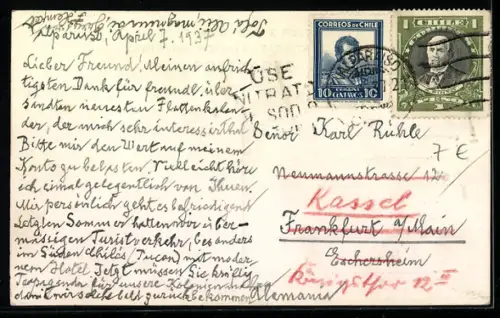 Valparaiso, April 7. 1937
Lieber Freund! Meinen aufrich-
tigsten Dank für freundl. über-
sandten neuesten Flottenkalen-
der, der mich sehr interessirt hat
Bitte mir den Wert auf meinem
Konto zu belasten. Vielleicht höre
ich einmal gelegentlich von Ihnen.
Mir persönlich geht es befriedigend
Letzten Sommer hatten wir über-
mässigen Turistverkehr, besonders
im Süden Chiles (Pucon) mit moder
nem Hotel Jetzt müssen Sie kräftig
Propaganda für unsere Kolonien machen
damit wir solche bald zurück bekommen
CORREOS DE CHILE
10 CENTAVOS 10
1 CHILE
VALPARAISO
USE
NITRATE
SODA
Señor Karl Rühle
7 €
Neumannstrasse 12
Kassel
Frankfurt a/Main
Eschersheim
Königsthor 12 II
Alemania